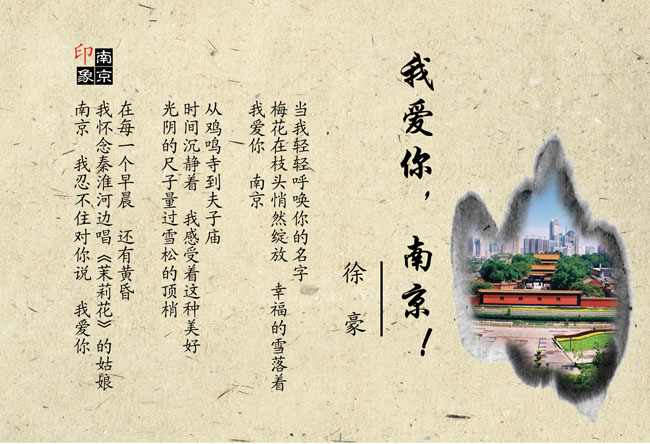 我爱你，南京！
徐豪
当我轻轻呼唤你的名字
梅花在枝头悄然绽放　幸福的雪落着
我爱你　南京
从鸡鸣寺到夫子庙
时间沉静着　我感受着这种美好
光阴的尺子量过雪松的顶梢
在每一个早晨　还有黄昏
我怀念秦淮河边唱《茉莉花》的姑娘
南京　我忍不住对你说　我爱你
南京
印象